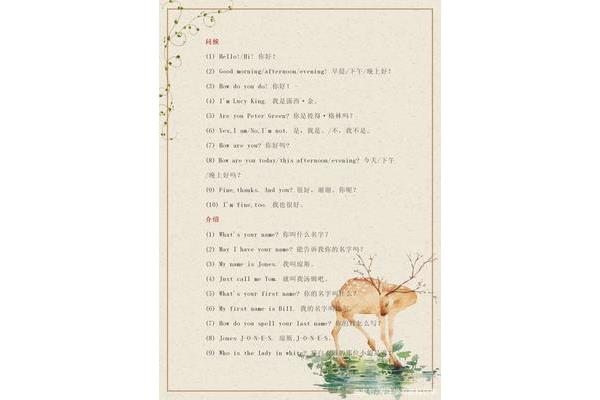 问候
(1) Hello!/Hi! 你好!
(2) Good morning/afternoon/evening! 早晨/下午/晚上好!
(3) How do you do! 你好!
(4) I'm Lucy King. 我是露西·金。
(5) Are you Peter Green? 你是彼得·格林吗?
(6) Yes,I am/No,I'm not. 是,我是。/不,我不是。
(7) How are you? 你好吗?
(8) How are you today/this afternoon/evening? 今天/下午
/晚上好吗?
(9) Fine,thanks. And you? 很好,谢谢。你呢?
(10) I'm fine,too. 我也很好。
介绍
(1) What's your name? 你叫什么名字?
(2) May I have your name? 能告诉我你的名字吗?
(3) My name is Jones. 我叫琼斯。
(4) Just call me Tom. 就叫我汤姆吧。
(5) What's your first name? 你的名字叫什么?
(6) My first name is Bill. 我的名字叫
(7) How do you spell your last name? 你的姓怎么写?
(8) Jones J-O-N-E-S. 琼斯,J-O-N-E-S.
(9) Who is the lady in white?